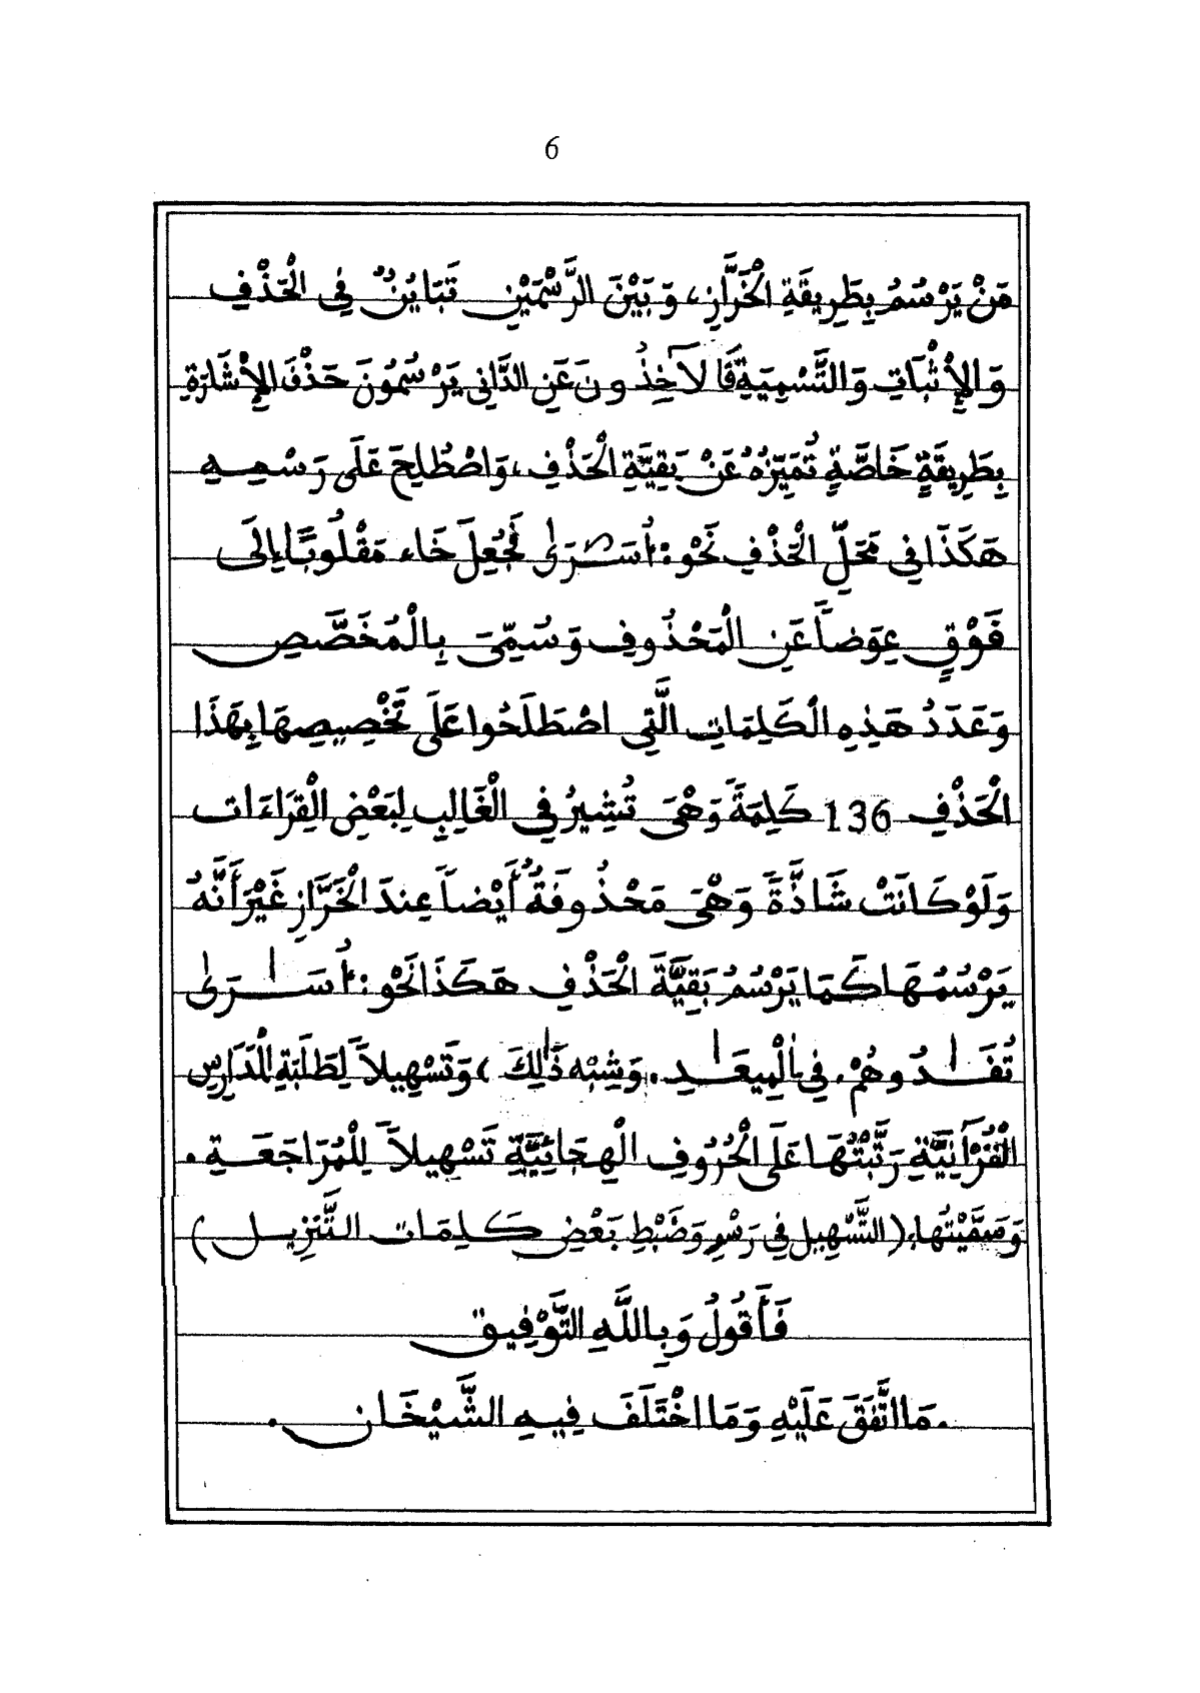 6
مَنْ يَرْسُمُ بِطَرِيقَةِ الْخَرَّازِ، وَبَيْنَ الرَّسْمَيْنِ تَبَايُنٌ فِي الْحَذْفِ
وَالْإِثْبَاتِ وَالتَّسْمِيَةِ فَالآخِذُونَ عَنِ الدَّانِي يَرْسُمُونَ حَذْفَ الْإِشَارَةِ
بِطَرِيقَةٍ خَاصَّةٍ تُمَيِّزُهُ عَنْ بَقِيَّةِ الْحَذْفِ، وَاصْطُلِحَ عَلَى رَسْمِهِ
هَكَذَا فِي مَحَلِّ الْحَذْفِ نَحْوُ: أُسَـٰرَىٰ فَجُعِلَ خَاء مَقْلُوبًا إِلَى
فَوْقٍ عِوَضاً عَنِ الْمَحْذُوفِ وَسُمِّيَ بِالْمُخَصَّصِ
وَعَدَدُ هَذِهِ الْكَلِمَاتِ الَّتِي اصْطَلَحُوا عَلَى تَخْصِيصِهَا بِهَذَا
الْحَذْفِ 136 كَلِمَةً وَهْيَ تُشِيرُ فِي الْغَالِبِ لِبَعْضِ الْقِرَاءَات
وَلَوْ كَانَتْ شَاذَّةً وَهْيَ مَحْذُوفَةٌ أَيْضاً عِندَ الْخَرَّازِ غَيْرَ أَنَّهُ
يَرْسُمُهَا كَمَا يَرْسُمُ بَقِيَّةَ الْحَذْفِ هَكَذَا نَحْوُ: أُسَـٰرَىٰ
تُفَـٰدُوهُمْ. فِي الْمِيعَـٰدِ. وَشِبْهِ ذَٰلِكَ، وَتَسْهِيلاً لِطَلَبَةِ الْمَدَارِسِ
الْقُرْآنِيَّةِ رَتَّبْتُهَا عَلَى الْحُرُوفِ الْهِجَائِيَّةِ تَسْهِيلاً لِلْمُرَاجَعَةِ.
وَسَمَّيْتُهَا: (التَّسْهِيل فِي رَسْمِ وَضَبْطِ بَعْضِ كَلِمَاتِ التَّنزِيل)
فَأَقُولُ وَبِاللَّهِ التَّوْفِيق
. مَا اتَّفَقَ عَلَيْهِ وَمَا اخْتَلَفَ فِيهِ الشَّيْخَان .